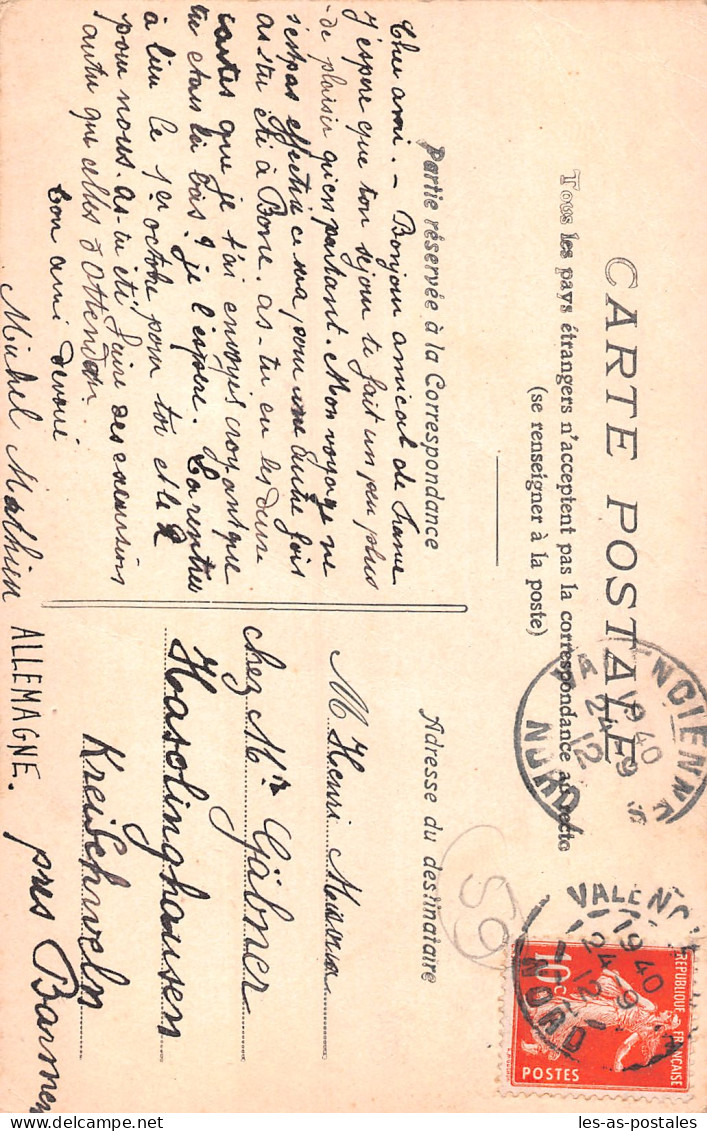 CARTE POSTALE
Tous les pays étrangers n'acceptent pas la correspondance au recto
(se renseigner à la poste)
Partie réservée à la Correspondance
Cher ami. - Bonjour amical de France
J'espère que ton séjour te fait un peu plus
de plaisir qu'en partant. Mon voyage ne
s'est pas effectué ce sera pour une autre fois
as-tu été à Bonn. as-tu eu les deux
cartes que je t'ai envoyés croyant que
tu étais là bas? je l'espère. La rentrée
à lieu le 1er octobre pour toi et le 2
pour nous. as-tu été faire des excursions
autre que celles d'Attendorn.
ton ami dévoué
Michel Mathieu
Adresse du destinataire
M Henri
chez Mr Gäbner
Hasslinghausen
Kreis Schwelm
près Barmen
ALLEMAGNE.
59
VALENCIENNES
19 40
24 - 9
12
NORD
VALENCIE
19 40
24 - 9
12
NORD
REPUBLIQUE FRANÇAISE
10c
POSTES
les-as-postales